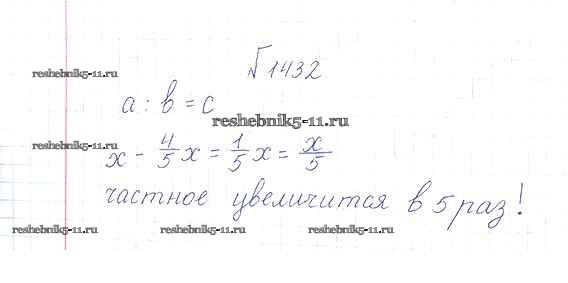 №1432
reshebnik5-11.ru
a : b = c
reshebnik5-11.ru
reshebnik5-11.ru
x - 4/5 x = 1/5 x = x/5
частное увеличится в 5 раз!
reshebnik5-11.ru reshebnik5-11.ru reshebnik5-11.ru